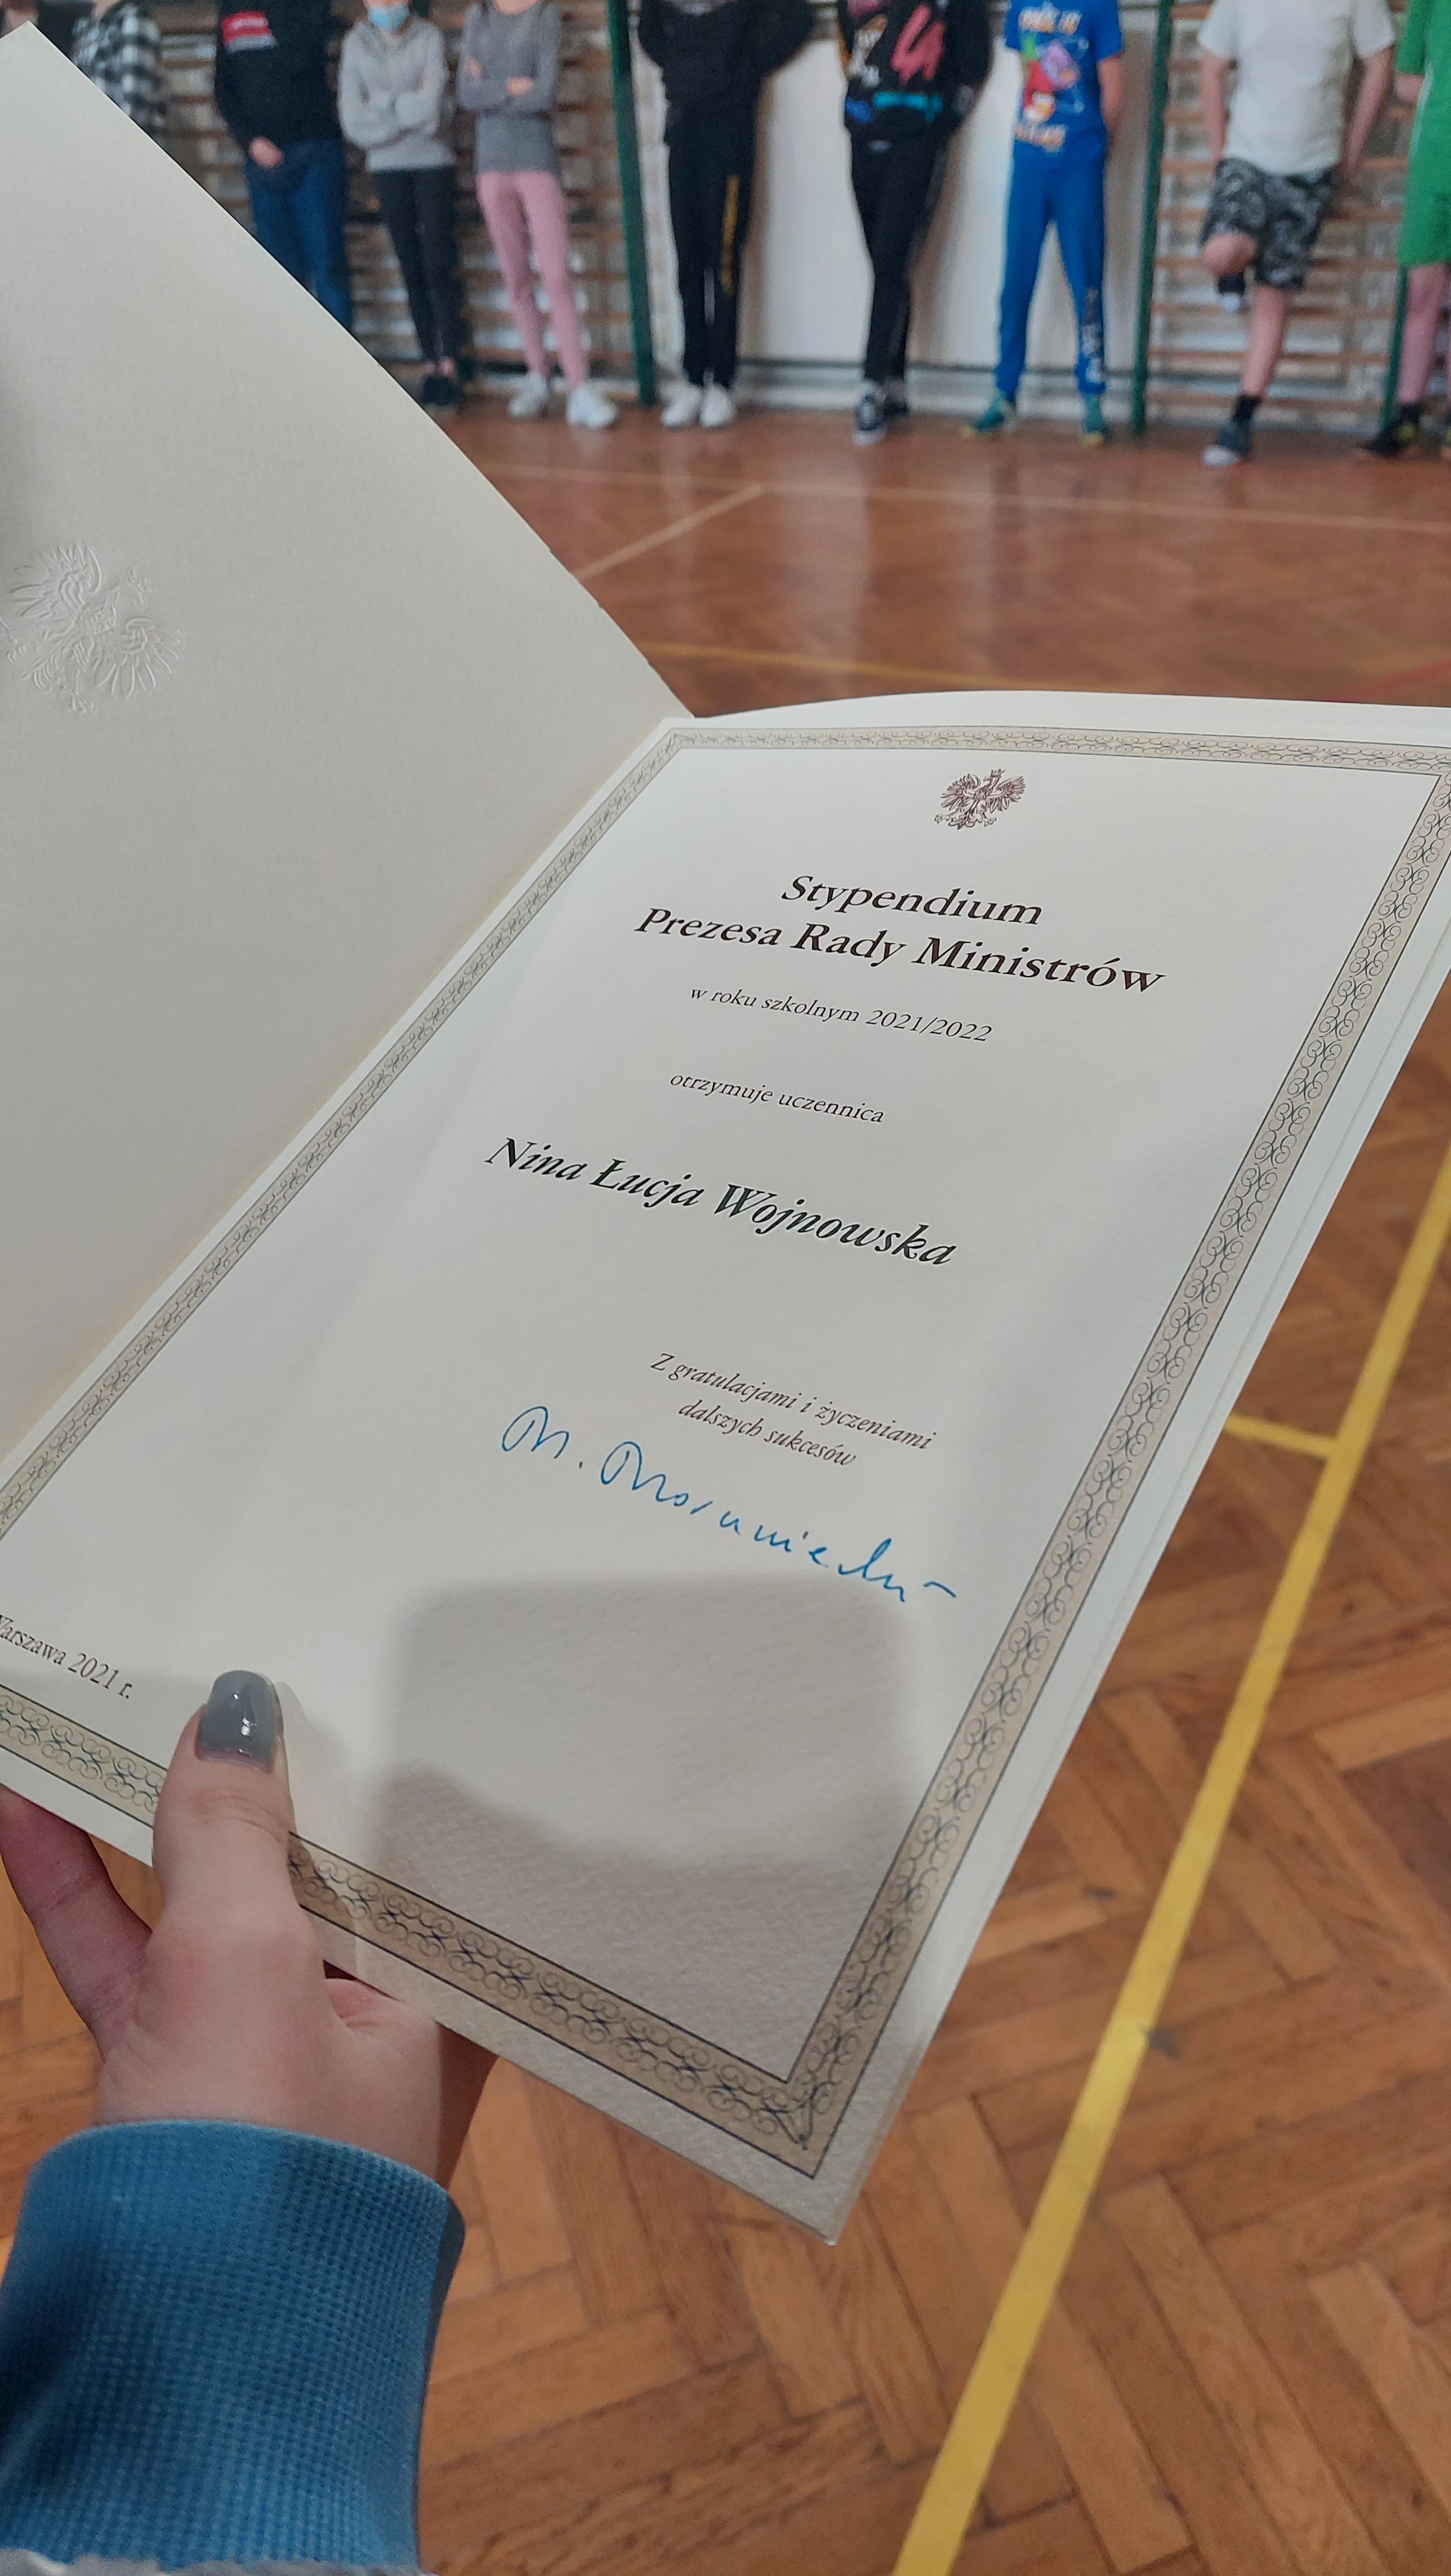 Stypendium
Prezesa Rady Ministrów
w roku szkolnym 2021/2022
otrzymuje uczennica
Nina Łucja Wojnowska
Z gratulacjami i życzeniami
dalszych sukcesów
M. Morawiecki
Warszawa 2021 r.